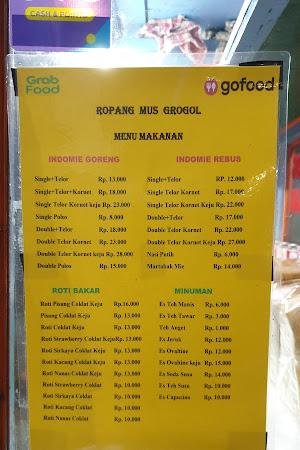 CASH &
Grab Food
gofood
ROPANG MUS GROGOL
MENU MAKANAN
INDOMIE GORENG
Single+Telor Rp. 13.000
Single+Telor+Kornet Rp. 18.000
Single Telor Kornet keju Rp. 23.000
Single Polos Rp. 8.000
Double+Telor Rp. 18.000
Double Telor Kornet Rp. 23.000
Double Telor Kornet keju Rp. 28.000
Double Polos Rp. 15.000
INDOMIE REBUS
Single+Telor RP. 12.000
Single Telor Kornet Rp. 17.000
Single Telor Kornet Keju Rp. 22.000
Double+Telor Rp. 17.000
Double Telor Kornet Rp. 22.000
Double Telor Kornet Keju Rp. 27.000
Nasi Putih Rp. 6.000
Martabak Mie Rp. 14.000
ROTI BAKAR
Roti Pisang Coklat Keju Rp.16.000
Pisang Coklat Keju Rp. 13.000
Roti Coklat Keju Rp. 13.000
Roti Strawberry Coklat Keju Rp. 13.000
Roti Srikaya Coklat Keju Rp. 13.000
Roti Kacang Coklat Keju Rp. 13.000
Roti Nanas Coklat Keju Rp. 13.000
Roti Strawberry Coklat Rp. 10.000
Roti Srikaya Coklat Rp. 10.000
Roti Kacang Coklat Rp. 10.000
Roti Nanas Coklat Rp. 10.000
MINUMAN
Es Teh Manis Rp. 6.000
Es Teh Tawar Rp. 3.000
Teh Anget Rp. 1.000
Es Jeruk Rp. 12.000
Es Ovaltine Rp. 12.000
Es Ovaltine keju Rp. 15.000
Es Soda Susu Rp. 14.000
Es Teh Susu Rp. 10.000
Es Capucino Rp. 10.000